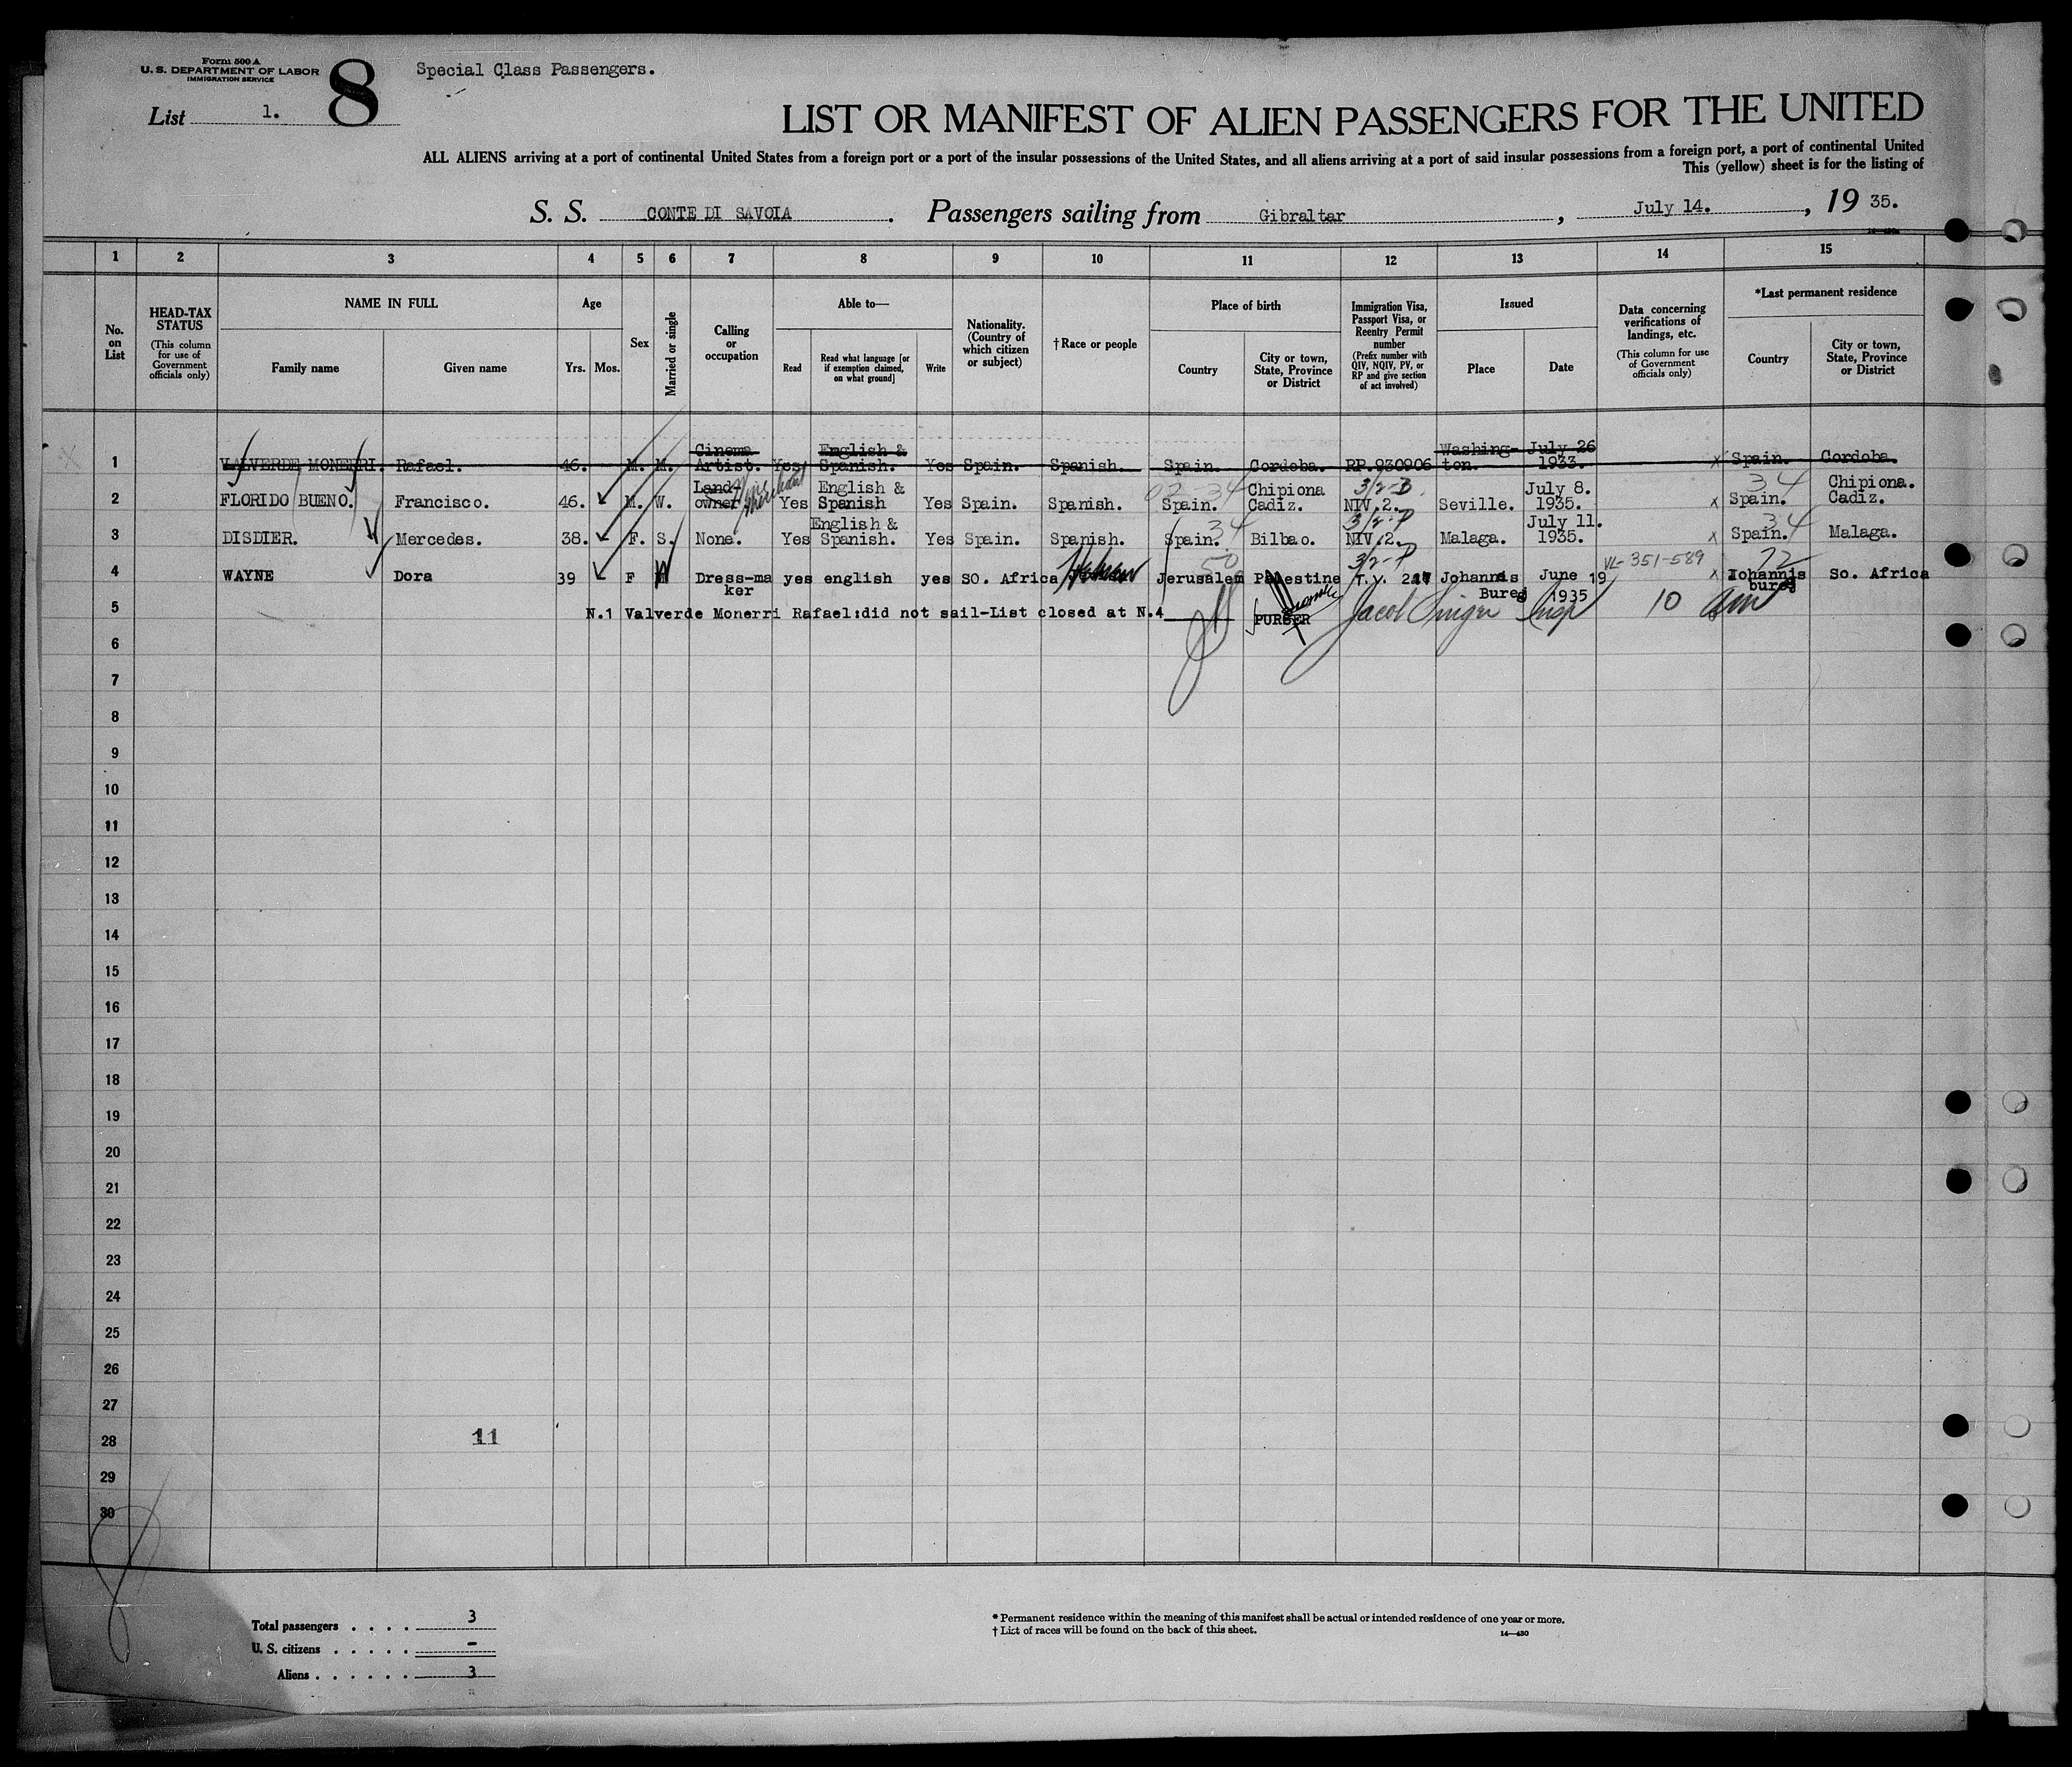 Form 500 A
U. S. DEPARTMENT OF LABOR
IMMIGRATION SERVICE
8
Special Class Passengers.
List 1.
LIST OR MANIFEST OF ALIEN PASSENGERS FOR THE UNITED
ALL ALIENS arriving at a port of continental United States from a foreign port or a port of the insular possessions of the United States, and all aliens arriving at a port of said insular possessions from a foreign port, a port of continental United
This (yellow) sheet is for the listing of
S. S. CONTE DI SAVOIA . Passengers sailing from Gibraltar , July 14. , 19 35.
1 2 3 4 5 6 7 8 9 10 11 12 13 14 15
No. on List
HEAD-TAX STATUS
(This column for use of Government officials only)
NAME IN FULL
Family name
Given name
Age
Yrs. Mos.
Sex
Married or single
Calling or occupation
Able to—
Read
Read what language [or if exemption claimed, on what ground]
Write
Nationality. (Country of which citizen or subject)
†Race or people
Place of birth
Country
City or town, State, Province or District
Immigration Visa, Passport Visa, or Reentry Permit number
(Prefix number with QIV, NQIV, PV, or RP and give section of act involved)
Issued
Place
Date
Data concerning verifications of landings, etc.
(This column for use of Government officials only)
*Last permanent residence
Country
City or town, State, Province or District
1 VALVERDE MONERRI. Rafael. 46. M. M. Cinema Artist. Yes English & Spanish. Yes Spain. Spanish. Spain. Cordoba. RP.930906 Washing-ton. July 26 1933. x Spain. Cordoba
2 FLORIDO BUENO. Francisco. 46. M. W. Land-owner Wine Merchant Yes English & Spanish Yes Spain. Spanish. 02-34 Spain. Chipiona Cadiz. 3/2-B NIV.2. Seville. July 8. 1935. x 34 Spain. Chipiona. Cadiz.
3 DISDIER. Mercedes. 38. F. S. None. Yes English & Spanish. Yes Spain. Spanish. 34 Spain. Bilbao. 3/2-P NIV.2. Malaga. July 11. 1935. x 34 Spain. Malaga.
4 WAYNE Dora 39 F Dress-ma ker yes english yes SO. Africa Hebrew 50 Jerusalem Palestine 3/2-P T.V. Johannis Bureg June 19 1935 VL-351-589 x 72 Iohannis bureg So. Africa
5 N.1 Valverde Monerri Rafael:did not sail-List closed at N.4 PURSER Jacob Singer Insp 10
6
7
8
9
10
11
12
13
14
15
16
17
18
19
20
21
22
23
24
25
26
27
28 11
29
30
Total passengers . . . . 3
U. S. citizens . . . . . -
Aliens . . . . . . 3
* Permanent residence within the meaning of this manifest shall be actual or intended residence of one year or more.
† List of races will be found on the back of this sheet.
14—430